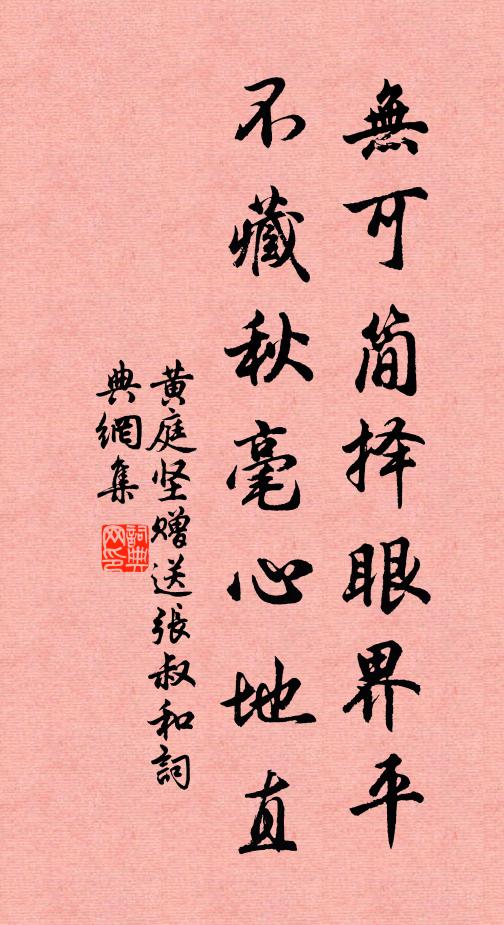 無可简择眼界平
不藏秋毫心地直
黄庭坚赠送張叔和詞
典網集
詞典
网印